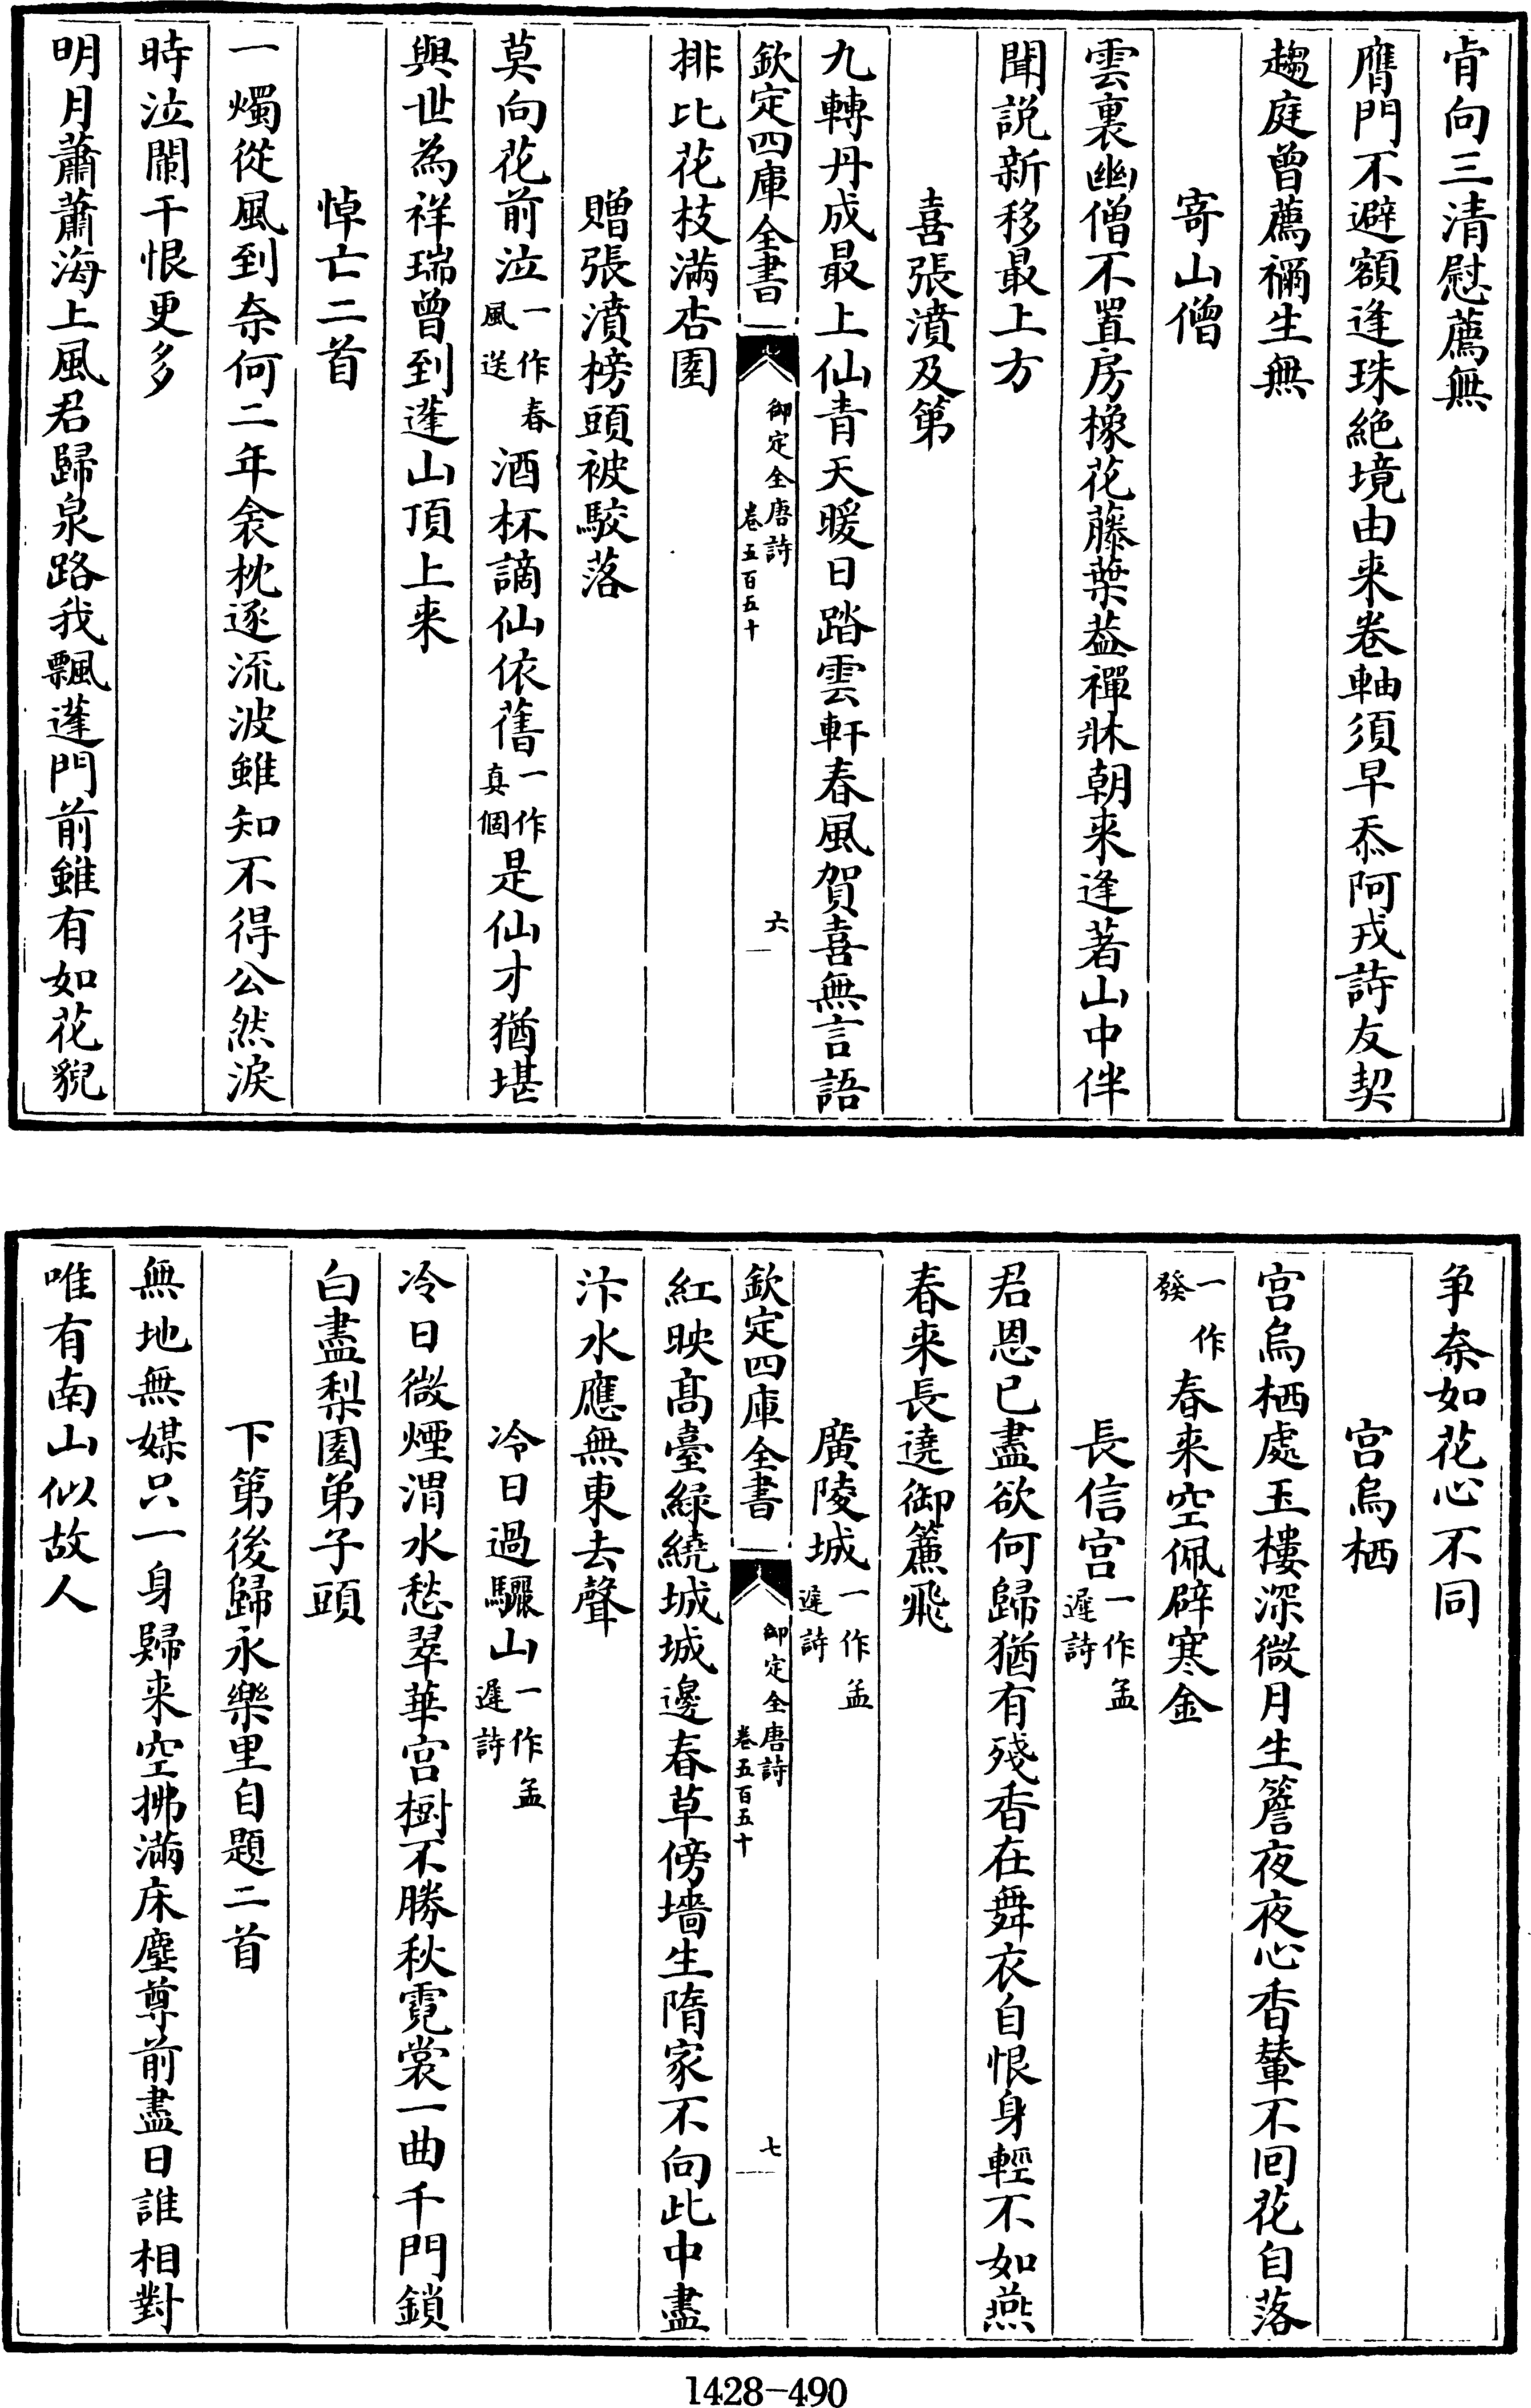 肯向三清慰薦無
膺門不避額逢珠絶境由来卷軸須早忝阿戎詩友契
趨庭曾薦禰生無
寄山僧
雲裏幽僧不置房橡花藤葉葢禪牀朝来逢著山中伴
聞説新移最上方
喜張濆及第
九轉丹成最上仙青天暖日踏雲軒春風賀喜無言語
欽定四庫全書 御定全唐詩 卷五百五十 六
排比花枝滿杏園
贈張濆榜頭被駮落
莫向花前泣一作春風送酒杯謫仙依舊一作真個是仙才猶堪
與世為祥瑞曾到蓬山頂上来
悼亡二首
一燭從風到奈何二年衾枕逐流波雖知不得公然淚
時泣闌干恨更多
明月蕭蕭海上風君歸泉路我飄蓬門前雖有如花貌
争奈如花心不同
宫烏栖
宫烏栖處玉樓深微月生簷夜夜心香輦不回花自落
一作發春来空佩辟寒金
長信宫一作孟遲詩
君恩已盡欲何歸猶有殘香在舞衣自恨身輕不如燕
春来長遶御簾飛
廣陵城一作孟遲詩
欽定四庫全書 御定全唐詩 卷五百五十 七
紅映高臺緑繞城城邊春草傍墻生隋家不向此中盡
汴水應無東去聲
冷日過驪山一作孟遲詩
冷日微煙渭水愁翠華宫樹不勝秋霓裳一曲千門鎖
白盡梨園弟子頭
下第後歸永樂里自題二首
無地無媒只一身歸来空拂滿床塵尊前盡日誰相對
唯有南山似故人
1428-490